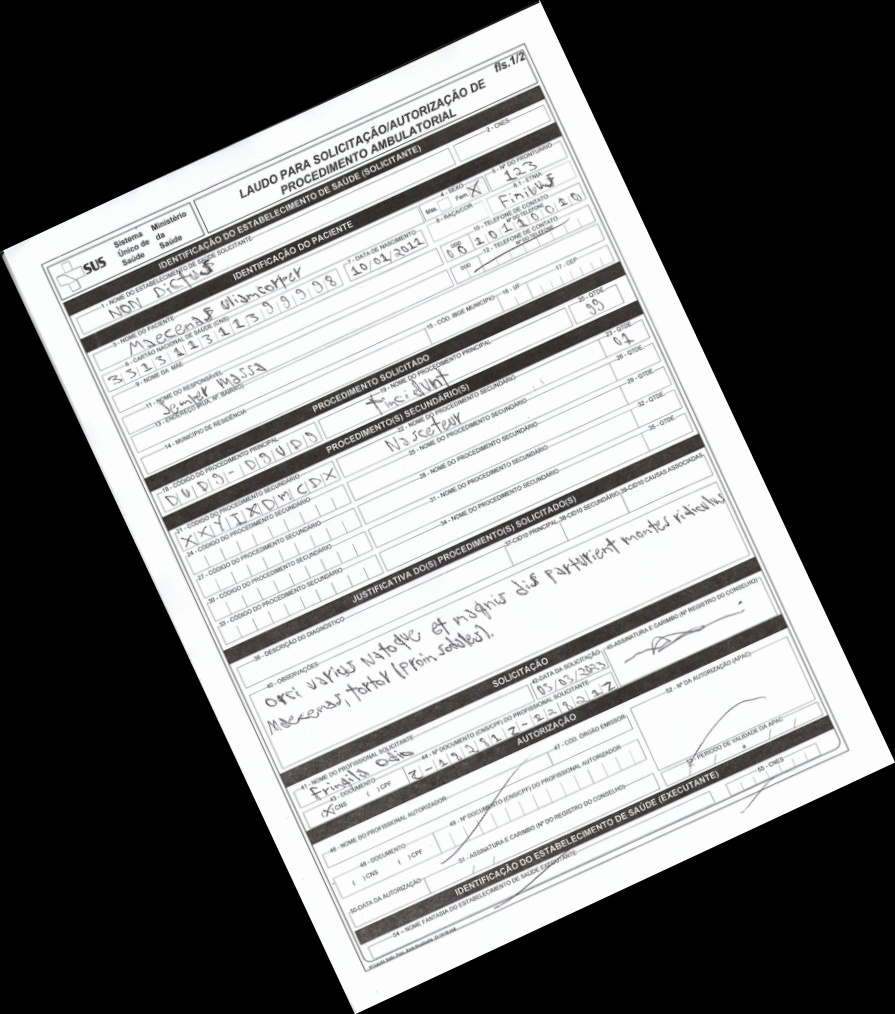 fls.1/2
SUS Sistema Único de Saúde Ministério da Saúde
LAUDO PARA SOLICITAÇÃO/AUTORIZAÇÃO DE PROCEDIMENTO AMBULATORIAL
IDENTIFICAÇÃO DO ESTABELECIMENTO DE SAÚDE (SOLICITANTE)
1 - NOME DO ESTABELECIMENTO DE SAÚDE SOLICITANTE
2 - CNES
NON Dictus
IDENTIFICAÇÃO DO PACIENTE
3 - NOME DO PACIENTE
4 - SEXO
5 - Nº DO PRONTUÁRIO
Maecenas Uliamcorper
Mas. Fem. X
123
6 - CARTÃO NACIONAL DE SAÚDE (CNS)
7 - DATA DE NASCIMENTO
8 - RAÇA/COR
8.1 - ETNIA
33131131399998
10/01/2011
Finibus
9 - NOME DA MÃE
10 - TELEFONE DE CONTATO
DDD Nº DO TELEFONE
11 - NOME DO RESPONSÁVEL
12 - TELEFONE DE CONTATO
DDD Nº DO TELEFONE
Semper Massa
13 - ENDEREÇO (RUA, Nº, BAIRRO)
14 - MUNICÍPIO DE RESIDÊNCIA
15 - CÓD. IBGE MUNICÍPIO
16 - UF
17 - CEP
PROCEDIMENTO SOLICITADO
18 - CÓDIGO DO PROCEDIMENTO PRINCIPAL
19 - NOME DO PROCEDIMENTO PRINCIPAL
20 - QTDE.
Tincidunt
99
PROCEDIMENTO(S) SECUNDÁRIO(S)
21 - CÓDIGO DO PROCEDIMENTO SECUNDÁRIO
22 - NOME DO PROCEDIMENTO SECUNDÁRIO
23 - QTDE.
XXYIXDMCDX
Nasceteur
01
24 - CÓDIGO DO PROCEDIMENTO SECUNDÁRIO
25 - NOME DO PROCEDIMENTO SECUNDÁRIO
26 - QTDE.
27 - CÓDIGO DO PROCEDIMENTO SECUNDÁRIO
28 - NOME DO PROCEDIMENTO SECUNDÁRIO
29 - QTDE.
30 - CÓDIGO DO PROCEDIMENTO SECUNDÁRIO
31 - NOME DO PROCEDIMENTO SECUNDÁRIO
32 - QTDE.
33 - CÓDIGO DO PROCEDIMENTO SECUNDÁRIO
34 - NOME DO PROCEDIMENTO SECUNDÁRIO
35 - QTDE.
JUSTIFICATIVA DO(S) PROCEDIMENTO(S) SOLICITADO(S)
36 - DESCRIÇÃO DO DIAGNÓSTICO
37-CID10 PRINCIPAL
38-CID10 SECUNDÁRIO
39-CID10 CAUSAS ASSOCIADAS
40 - OBSERVAÇÕES
orci varius natoque et magnis dis parturient montes ridiculus
Maecenas, tortor (Proin sodales).
SOLICITAÇÃO
41 - NOME DO PROFISSIONAL SOLICITANTE
42-DATA DA SOLICITAÇÃO
45-ASSINATURA E CARIMBO (Nº REGISTRO DO CONSELHO)
Fringila Odio
03/03/2023
43 - DOCUMENTO
44 - Nº DOCUMENTO (CNS/CPF) DO PROFISSIONAL SOLICITANTE
(X) CNS ( ) CPF
AUTORIZAÇÃO
46 - NOME DO PROFISSIONAL AUTORIZADOR
47 - CÓD. ÓRGÃO EMISSOR
52 - Nº DA AUTORIZAÇÃO (APAC)
48 - DOCUMENTO
49 - Nº DOCUMENTO (CNS/CPF) DO PROFISSIONAL AUTORIZADOR
( ) CNS ( ) CPF
50-DATA DA AUTORIZAÇÃO
51 - ASSINATURA E CARIMBO (Nº DO REGISTRO DO CONSELHO)
53 - PERÍODO DE VALIDADE DA APAC
IDENTIFICAÇÃO DO ESTABELECIMENTO DE SAÚDE (EXECUTANTE)
54 - NOME FANTASIA DO ESTABELECIMENTO DE SAÚDE EXECUTANTE
55 - CNES